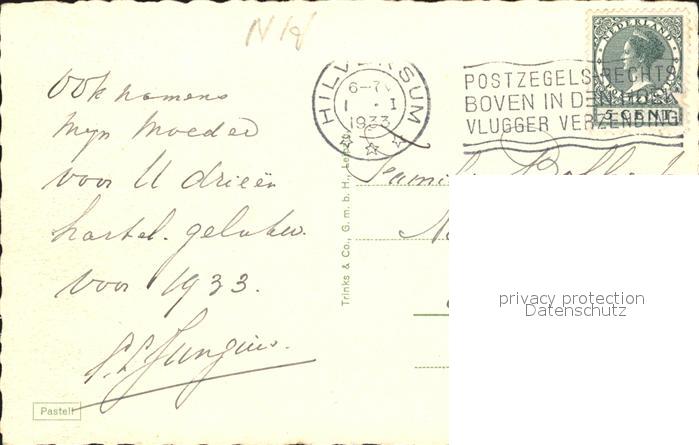 Ook namens
Mijn Moeder
voor U drieën
hartel. gelukw.
voor 1933.
HILVERSUM
6-7
1 . I
1933
POSTZEGELS RECHTS
BOVEN IN DEN HOEK
VLUGGER VERZENDING
NEDERLAND
5 CENT
Familie
Trinks & Co., G. m. b. H., Leipzig
privacy protection
Datenschutz
Pastell